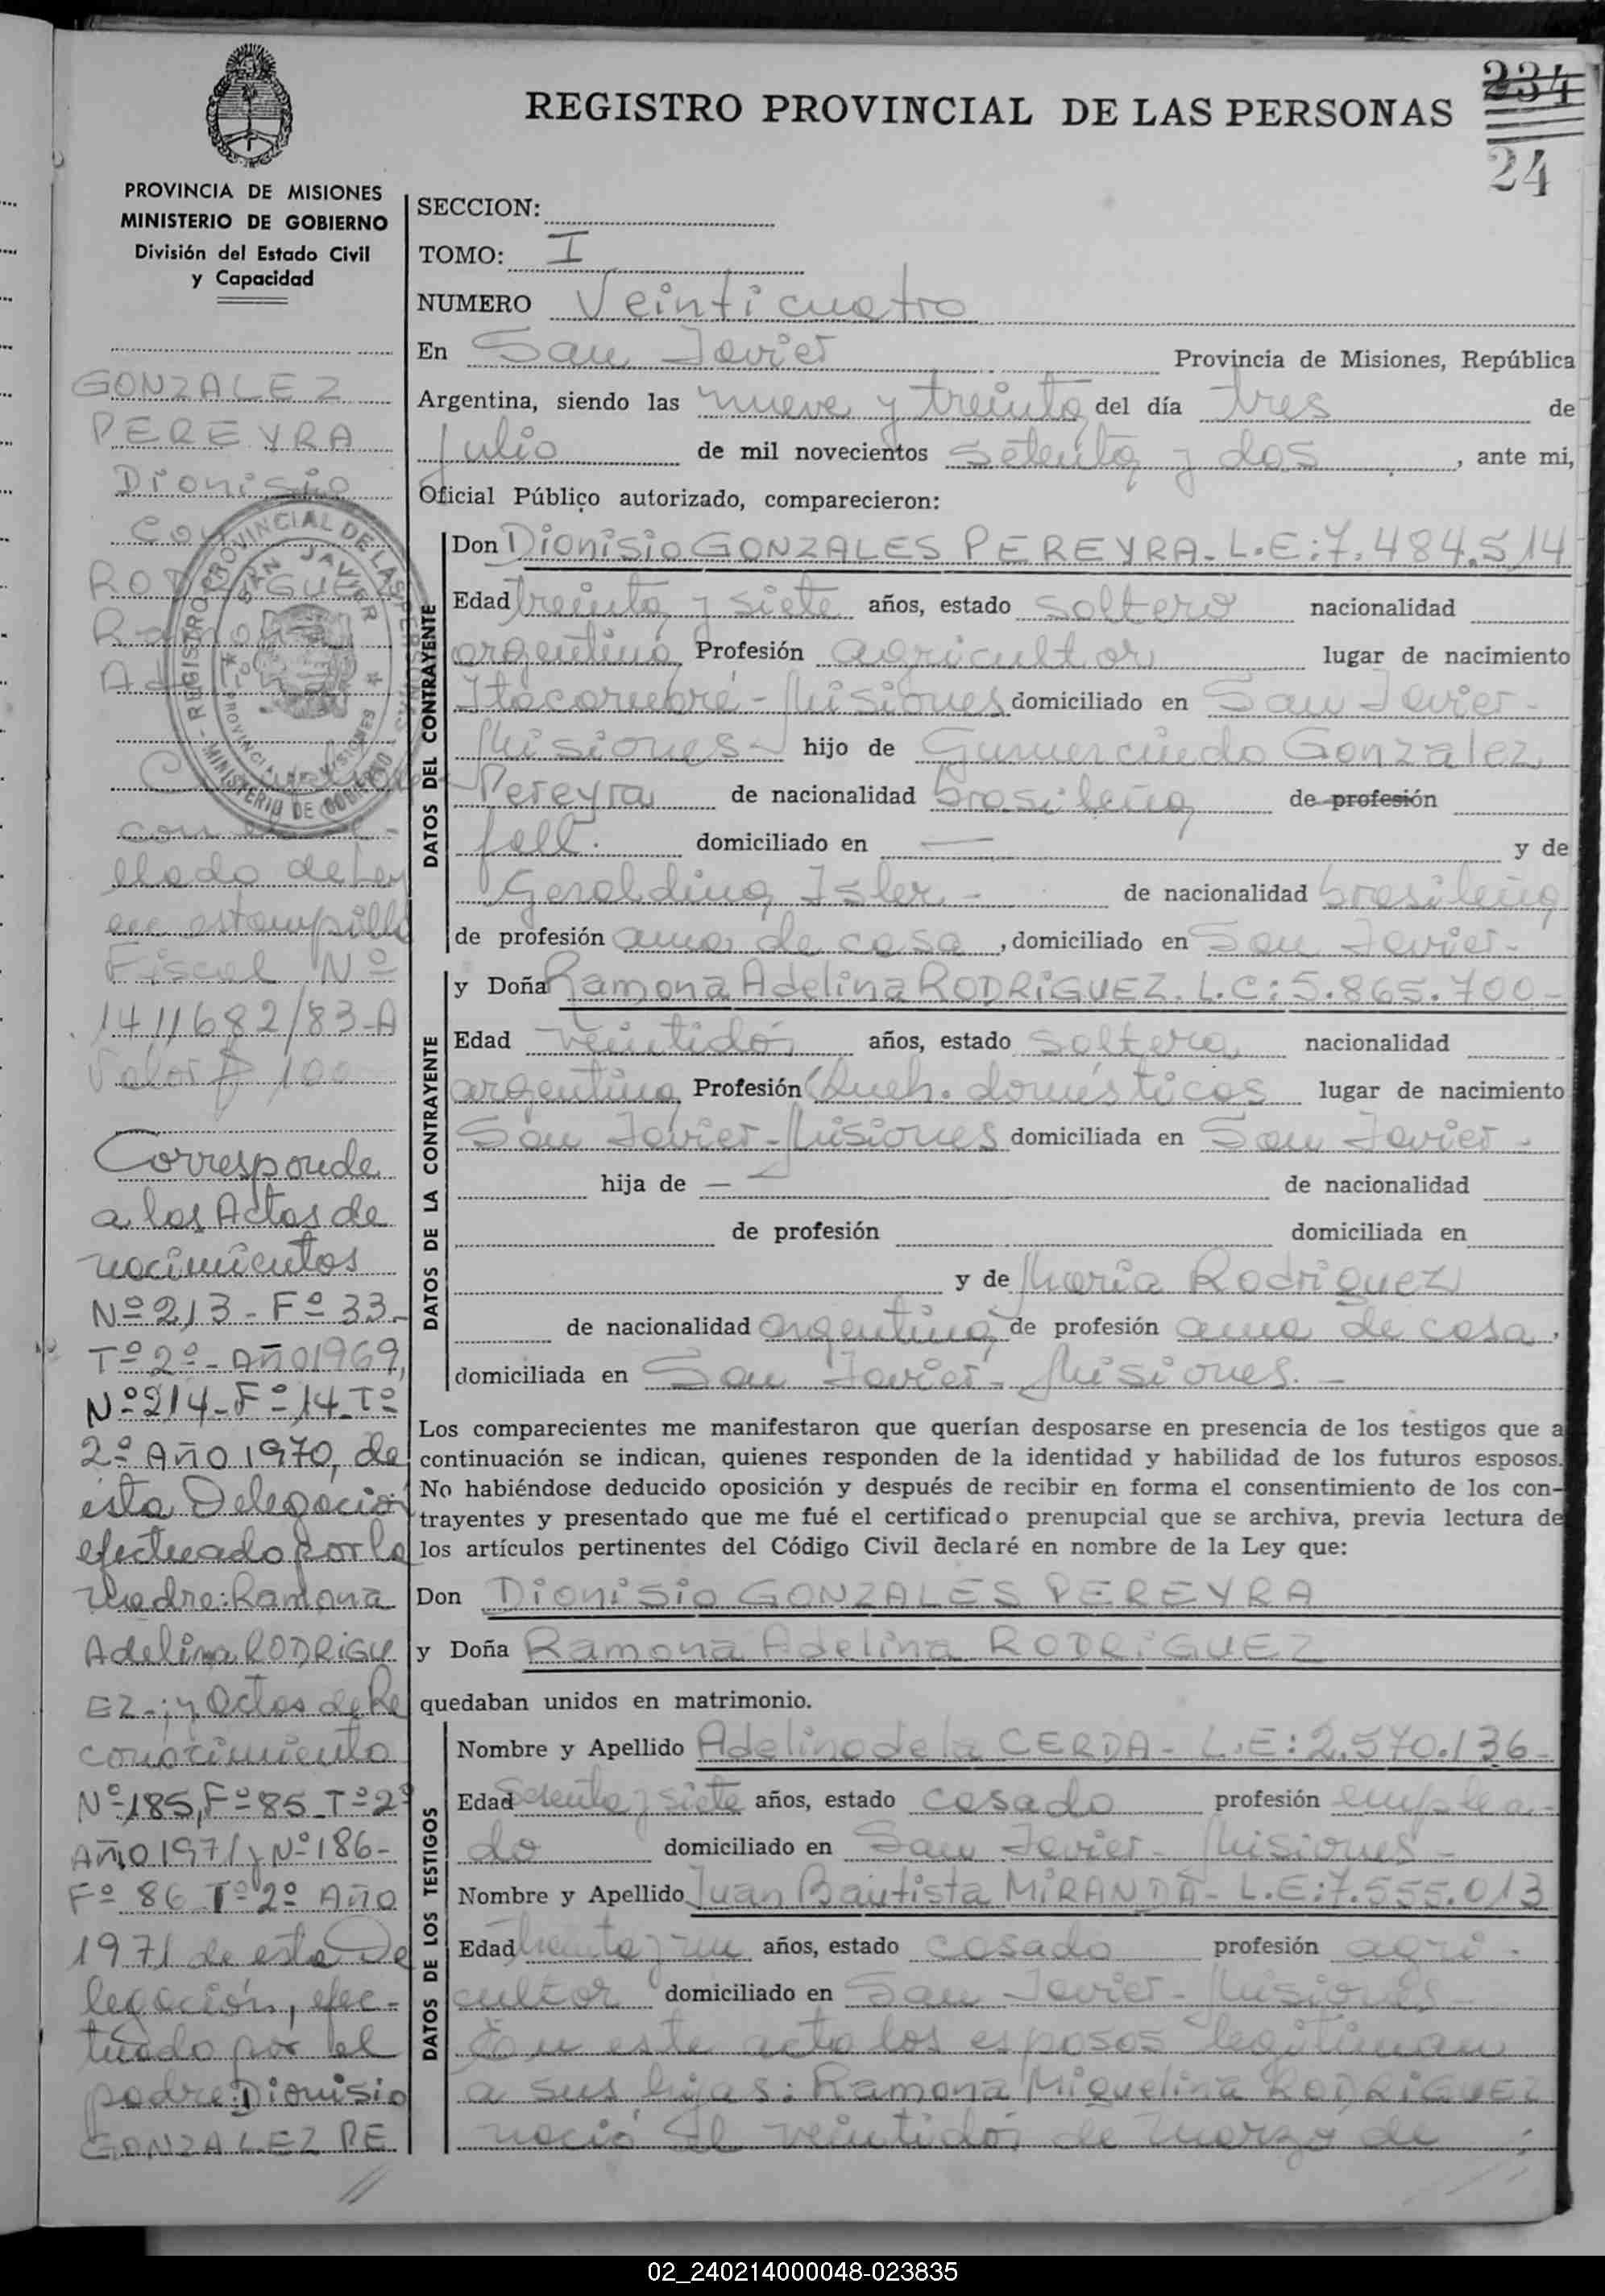 REGISTRO PROVINCIAL DE LAS PERSONAS
234
24
PROVINCIA DE MISIONES
MINISTERIO DE GOBIERNO
División del Estado Civil
y Capacidad
GONZALEZ
PEREYRA
Dionisio
Con
RODRIGUEZ
Ramona
REGISTRO PROVINCIAL DE LAS PERSONAS
SAN JAVIER
PROVINCIA DE MISIONES
MINISTERIO DE GOBIERNO
con el se-
llado de Ley
en estampilla
Fiscal Nº
1411682/83-A
Valor $ 100
Corresponde
a las Actas de
nacimientos
Nº 213 - Fº 33-
Tº 2º - Año 1969,
Nº 214 - Fº 14 - Tº
2º Año 1970, de
esta Delegación
efectuado por la
madre: Ramona
Adelina RODRIGU
EZ-; y Actas de Re
conocimiento
Nº 185, Fº 85 - Tº 2º
Año 1971 y Nº 186-
Fº 86 Tº 2º Año
1971 de esta De
legación, efec-
tuado por el
padre: Dionisio
GONZALEZ PE
//
SECCION:
TOMO: I
NUMERO Veinticuatro
En San Javier Provincia de Misiones, República
Argentina, siendo las nueve y treinta del día tres de
Julio de mil novecientos setenta y dos, ante mi,
Oficial Público autorizado, comparecieron:
DATOS DEL CONTRAYENTE
Don Dionisio GONZALES PEREYRA - L.E: 7.484.514
Edad treinta y siete años, estado soltero nacionalidad
argentina Profesión agricultor lugar de nacimiento
Itacaruaré - Misiones domiciliado en San Javier -
Misiones - hijo de Gumercindo Gonzalez
Pereyra de nacionalidad brasileña de profesión
fall. domiciliado en — y de
Geraldina Isler - de nacionalidad brasileña
de profesión ama de casa, domiciliado en San Javier -
DATOS DE LA CONTRAYENTE
y Doña Ramona Adelina RODRIGUEZ. L.C: 5.865.700-
Edad veintidós años, estado soltera nacionalidad
argentina Profesión Queh. domésticos lugar de nacimiento
San Javier - Misiones domiciliada en San Javier -
hija de — de nacionalidad
de profesión domiciliada en
y de María Rodriguez
de nacionalidad argentina de profesión ama de casa,
domiciliada en San Javier - Misiones. -
Los comparecientes me manifestaron que querían desposarse en presencia de los testigos que a
continuación se indican, quienes responden de la identidad y habilidad de los futuros esposos.
No habiéndose deducido oposición y después de recibir en forma el consentimiento de los con-
trayentes y presentado que me fué el certificado prenupcial que se archiva, previa lectura de
los artículos pertinentes del Código Civil declaré en nombre de la Ley que:
Don Dionisio GONZALES PEREYRA
y Doña Ramona Adelina RODRIGUEZ
quedaban unidos en matrimonio.
DATOS DE LOS TESTIGOS
Nombre y Apellido Adelino de la CERDA - L.E: 2.570.136-
Edad sesenta y siete años, estado casado profesión emplea-
do domiciliado en San Javier - Misiones -
Nombre y Apellido Juan Bautista MIRANDA - L.E: 7.555.013
Edad treinta y un años, estado casado profesión agri-
cultor domiciliado en San Javier - Misiones -
En este acto los esposos legitiman
a sus hijas: Ramona Miquelina RODRIGUEZ
nació el veintidós de marzo de
02_240214000048-023835